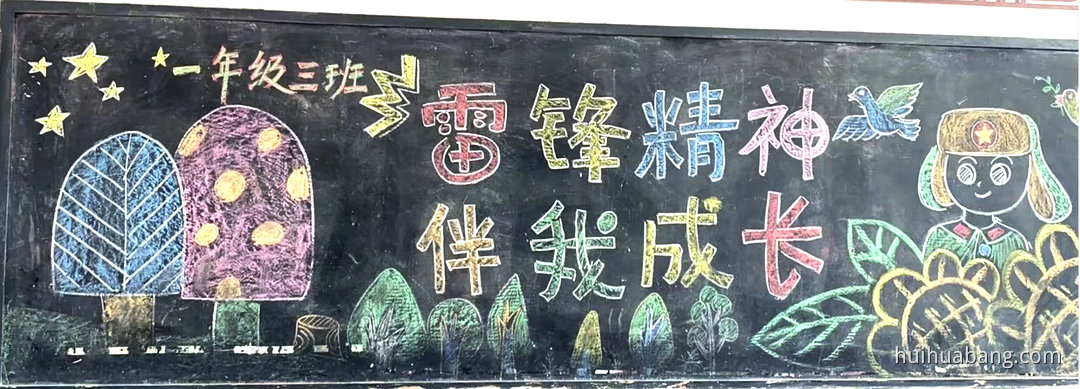 一年级三班
雷锋精神
伴我成长
huihuabang.com